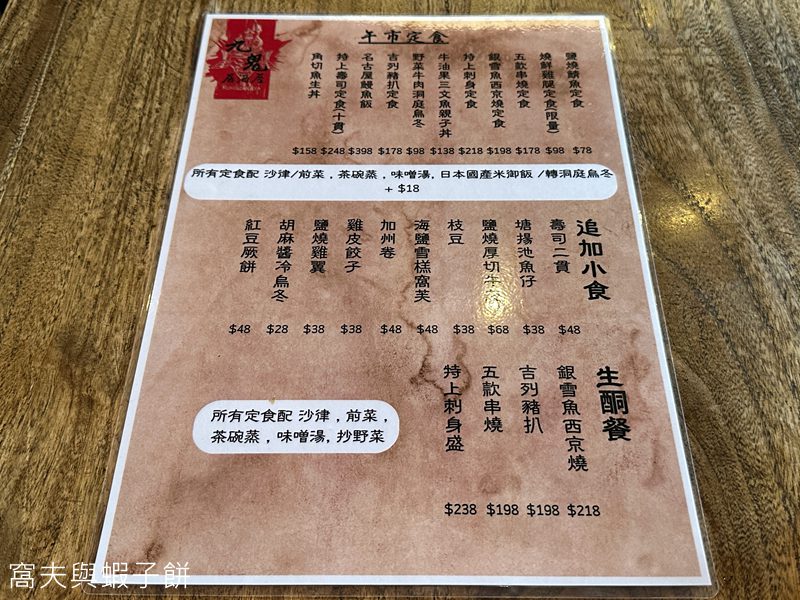 九鬼
居酒屋
午市定食
鹽燒鯖魚定食
燒鮮雞腿定食(限量)
五款串燒定食
銀雪魚西京燒定食
持上刺身定食
牛油果三文魚親子丼
野菜牛肉洞庭烏冬
吉列豬扒定食
名古屋鰻魚飯
持上壽司定食(十貫)
角切魚生丼
$158 $248 $398 $178 $98 $138 $218 $198 $178 $98 $78
所有定食配 沙律/前菜 , 茶碗蒸 , 味噌湯, 日本國產米御飯 /轉洞庭烏冬
+ $18
追加小食
壽司二貫
塘揚池魚仔
鹽燒厚切牛
枝豆
海鹽雪糕窩芙
加州卷
雞皮餃子
鹽燒雞翼
胡麻醬冷烏冬
紅豆厥餅
$48 $28 $38 $38 $48 $48 $38 $68 $38 $48
生酮餐
銀雪魚西京燒
吉列豬扒
五款串燒
特上刺身盛
$238 $198 $198 $218
所有定食配 沙律 , 前菜 ,
茶碗蒸 , 味噌湯, 抄野菜
窩夫與蝦子餅